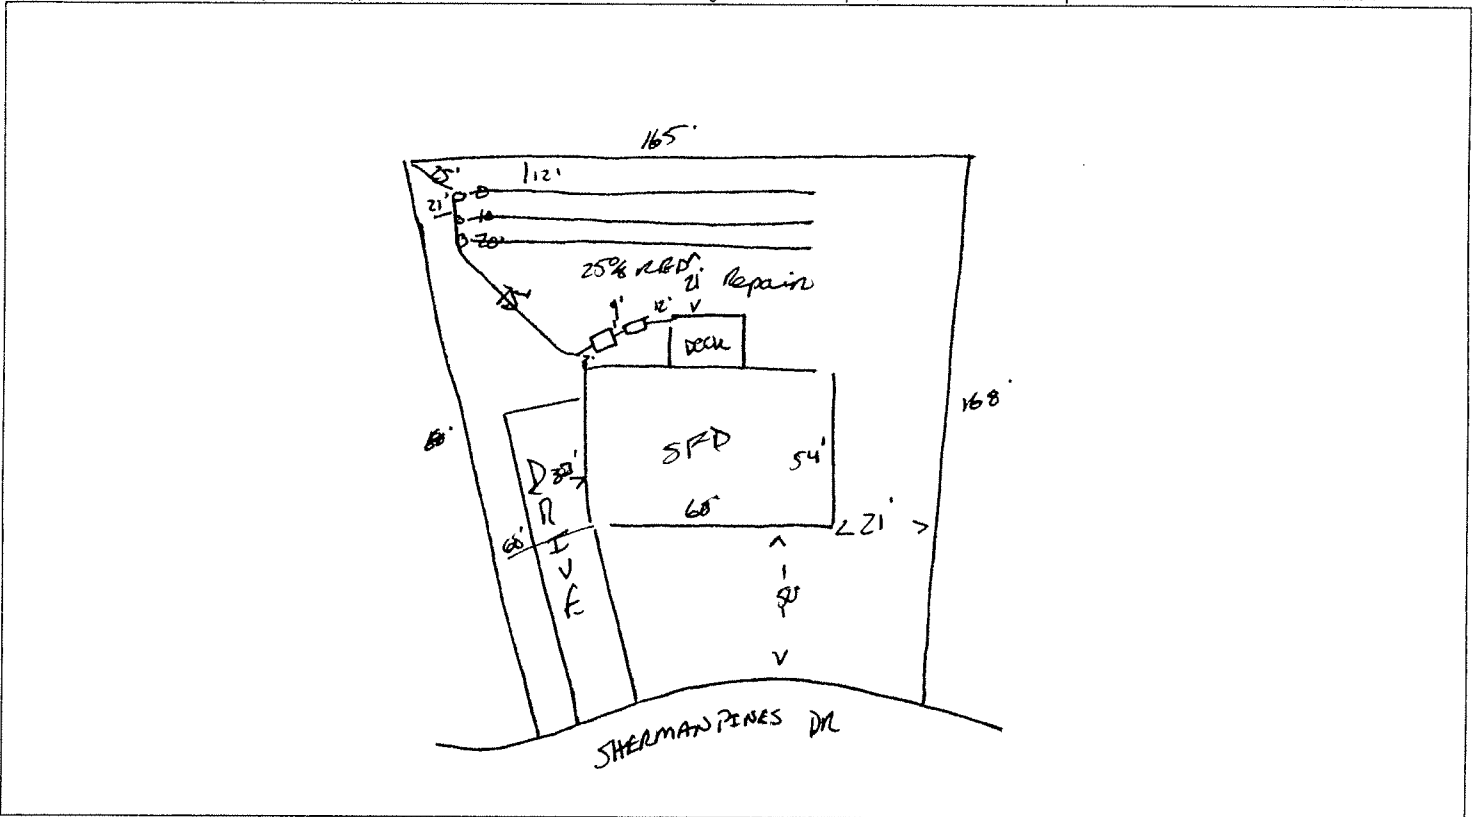 165'
25'
12'
21'
0
10
20
25% RED
21' Repair
9'
12'
DECK
168'
SFD
54'
60'
DRIVE
<21'>
50'
SHERMAN PINES DR